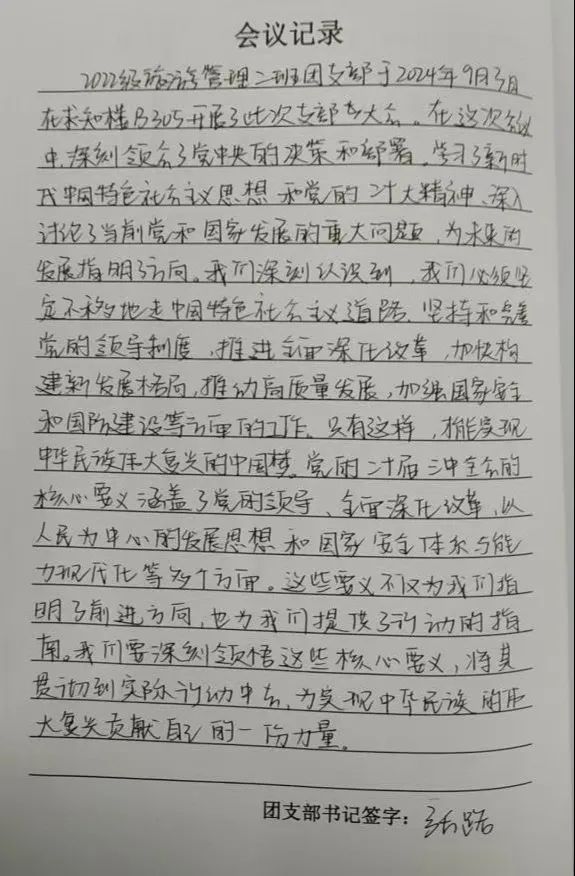 会议记录
2022级旅游管理二班团支部于2024年9月3日
在求知楼B305开展了此次支部大会。在这次会议
中,深刻领会了党中央的决策和部署。学习了新时
代中国特色社会主义思想和党的二十大精神、深入
讨论了当前党和国家发展的重大问题,为未来的
发展指明了方向。我们深刻认识到,我们必须坚
定不移地走中国特色社会主义道路、坚持和完善
党的领导制度,推进全面深化改革,加快构
建新发展格局,推动高质量发展,加强国家安全
和国防建设等方面的工作。只有这样,才能实现
中华民族伟大复兴的中国梦。党的二十届三中全会的
核心要义涵盖了党的领导、全面深化改革、以
人民为中心的发展思想和国家安全体系与能
力现代化等多个方面。这些要义不仅为我们指
明了前进方向,也为我们提供了行动的指
南。我们要深刻领悟这些核心要义,将其
贯彻到实际行动中去,为实现中华民族的伟
大复兴贡献自己的一份力量。
团支部书记签字: